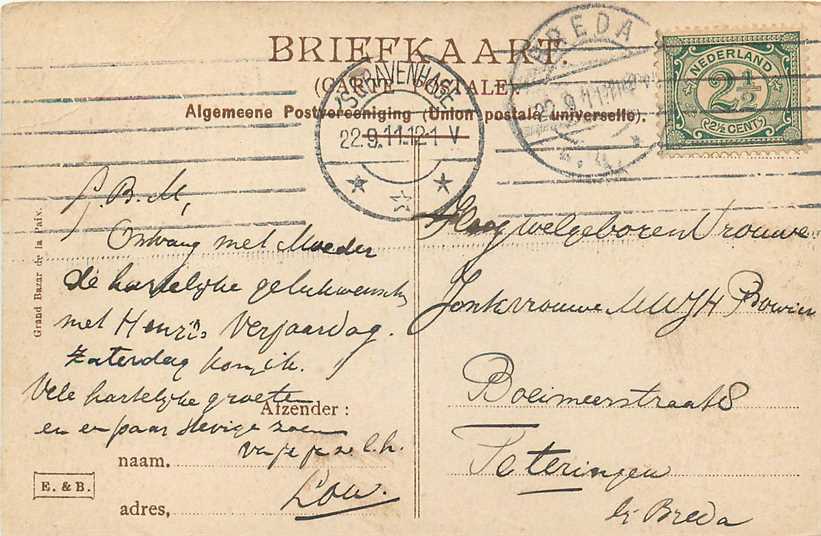 BRIEFKAART.
(CARTE POSTALE)
Algemeene Postvereeniging (Union postale universelle).
'SGRAVENHAGE
22.9.11.12-1 V
BREDA
22.9.11
NEDERLAND
2½
(2½ CENT)
Grand Bazar de la Paix.
L.B.M,
Ontvang met Moeder
de hartelijke gelukwensch
met Henri's Verjaardag.
Zaterdag kom ik.
Vele hartelijke groeten
en en paar stevige zoen
van je je
Lou.
Afzender:
naam.
adres,
E. & B.
Hoogwelgeboren Vrouwe
Jonkvrouwe MWJH
Boeimeerstraat 8
Teteringen
bij Breda